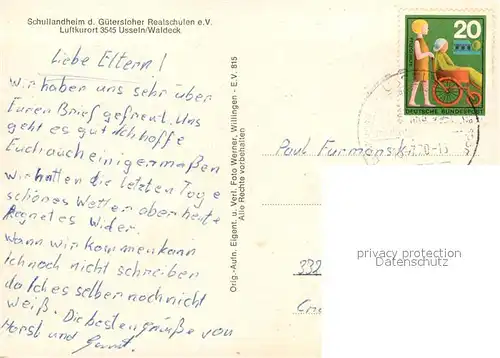 Schullandheim d. Gütersloher Realschulen e.V.
Luftkurort 3545 Usseln/Waldeck
Liebe Eltern!
Wir haben uns sehr über
Euren Brief gefreut. Uns
geht es gut Ich hoffe
Euch auch einigermaßen
wir hatten die letzten Tage
schönes Wetter aber heute
Regnet es Wider.
Wann wir kommen kann
ich noch nicht schreiben
da Ich es selber noch nicht
weiß. Die besten grüße von
Horst und Gerrit.
Orig.-Aufn. Eigent. u. Verl. Foto Werner, Willingen - E.V. 815
Alle Rechte vorbehalten
20
DEUTSCHE BUNDESPOST
Paul Furmanski
332
privacy protection
Datenschutz